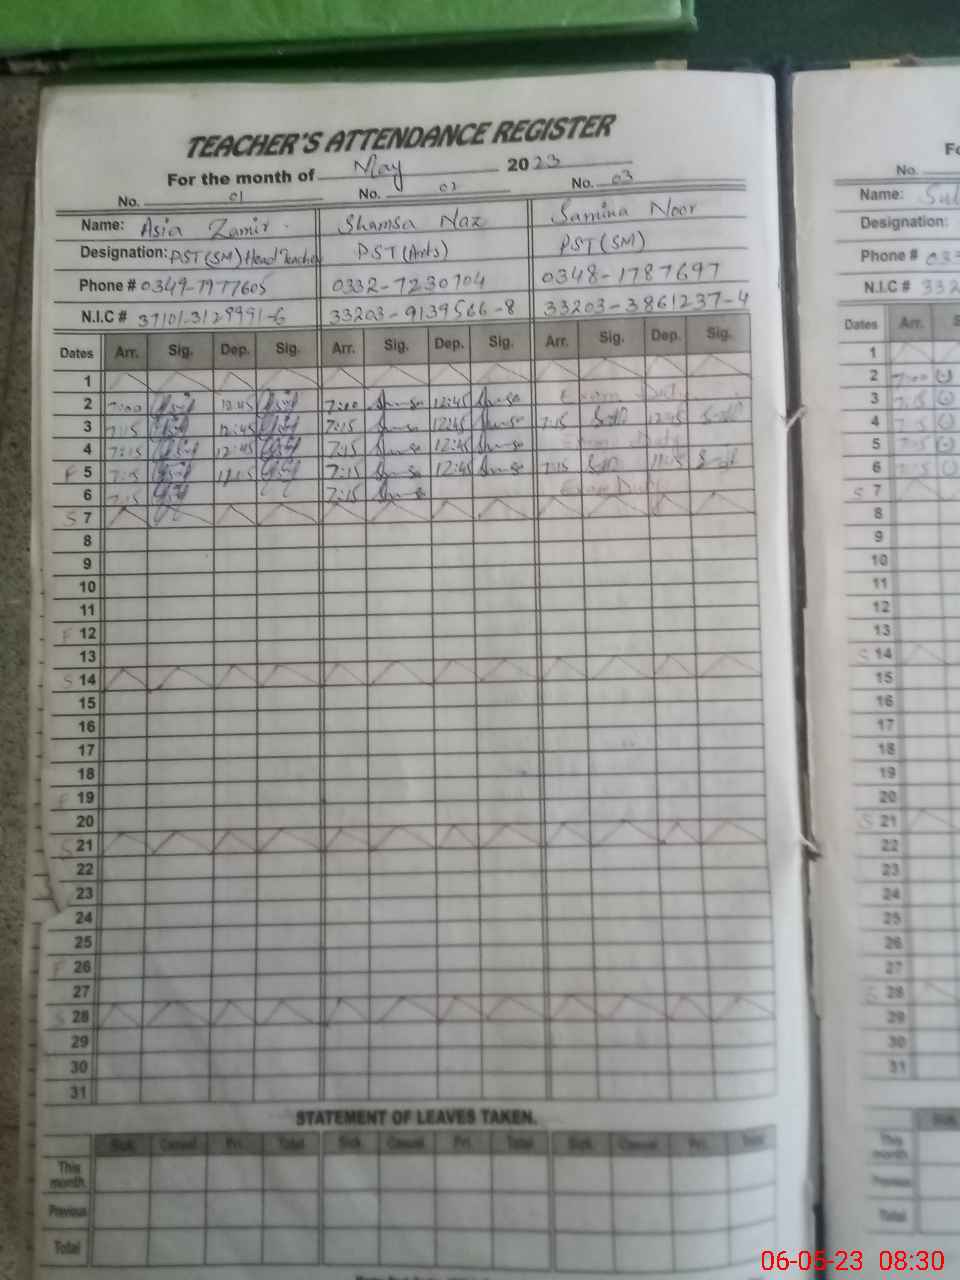 TEACHER'S ATTENDANCE REGISTER
For the month of May 2023
No. 01 No. 02 No. 03
Name: Asia Zamir Shamsa Naz Samina Noor
Designation: PST(SM) Head Teacher PST(Arts) PST(SM)
Phone # 0349-7977605 0332-7230704 0348-1787697
N.I.C # 37101-3129991-6 33203-9139566-8 33203-3861237-4
Dates Arr. Sig. Dep. Sig. Arr. Sig. Dep. Sig. Arr. Sig. Dep. Sig.
1
2 7:00 12:45 7:00 12:45 Exam Duty
3 7:15 12:45 7:15 12:45 7:15 12:45
4 7:15 12:45 7:15 12:45 Exam Duty
F 5 7:15 11:15 7:15 12:45 7:15 11:15
6 7:15 7:15 Exam Duty
S 7
8
9
10
11
F 12
13
S 14
15
16
17
18
F 19
20
S 21
22
23
24
25
F 26
27
S 28
29
30
31
STATEMENT OF LEAVES TAKEN.
Sick Casual Pri. Total Sick Casual Pri. Total Sick Casual Pri. Total
This month
Previous
Total
No.
Name:
Designation:
Phone # 033
N.I.C # 332
Dates Arr.
1
2 7:00
3 7:15
4 7:15
5 7:15
6 7:15
S 7
8
9
10
11
12
13
S 14
15
16
17
18
19
20
S 21
22
23
24
25
26
27
S 28
29
30
31
Sick
This month
Previous
Total
06-05-23 08:30